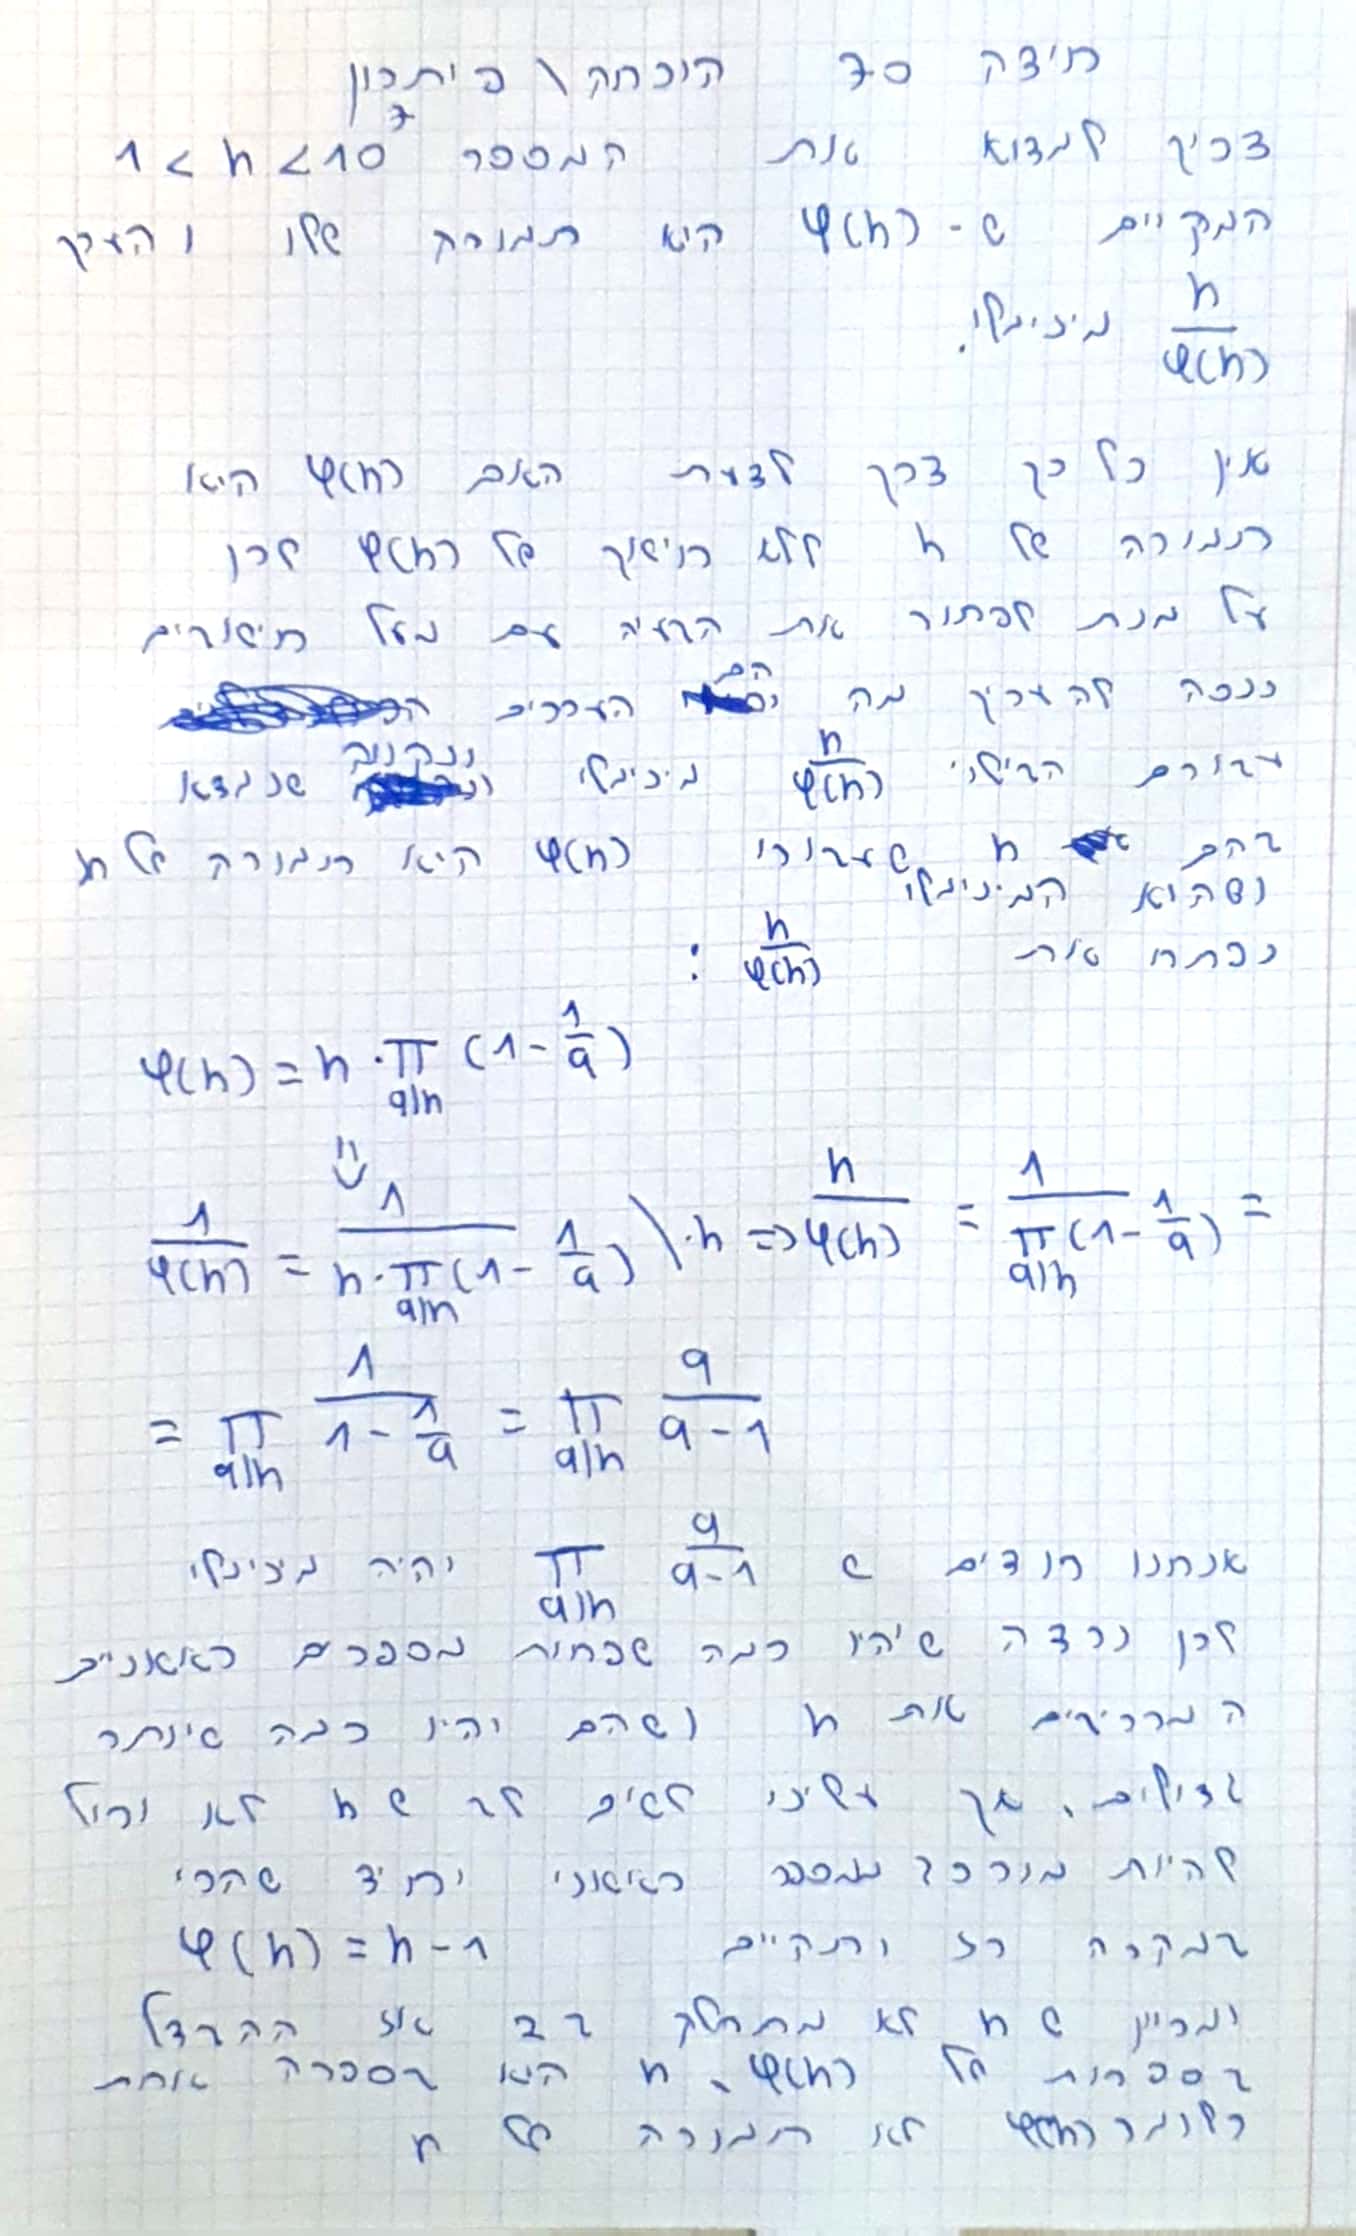 חידה 70 הוכחה \ פיתרון
צריך למצוא את המספר 1 < n < 10^7
המקיים ש- φ(n) היא תמורה שלו והערך
n/φ(n) מינימלי.
אין כל כך דרך לדעת האם φ(n) היא
תמורה של n ללא חישוב של φ(n) לכן
על מנת לפתור את הבעיה עם מעל חישובים
ננסה להעריך מה הם הערכים
עבורם הביטוי n/φ(n) מינימלי ונקווה שנמצא
בהם n שעבורו φ(n) היא תמורה של n
ושהוא המינימלי
נפתח את n/φ(n) :
φ(n) = n · ∏_{q|n} (1 - 1/q)
1/φ(n) = 1/(n · ∏_{q|n} (1 - 1/q)) \ ·n => n/φ(n) = 1/(∏_{q|n} (1 - 1/q)) =
= ∏_{q|n} 1/(1 - 1/q) = ∏_{q|n} q/(q-1)
אנחנו רוצים ש ∏_{q|n} q/(q-1) יהיה מינימלי
לכן נרצה שיהיו כמה שפחות מספרים ראשוניים
המרכיבים את n ושהם יהיו כמה שיותר
גדולים. אך עלינו לשים לב ש n לא יכול
להיות מורכב ממספר ראשוני יחיד שהרי
במקרה כזה יתקיים φ(n) = n-1
ומכיוון ש n לא מתחלק ב 2 אז ההבדל
בספרות של φ(n), n הוא בספרה אחת
כלומר φ(n) לא תמורה של n